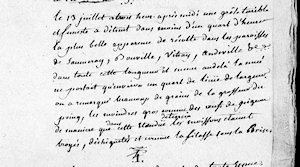 le 13 juillet une heure après midi une grêle terrible
et funeste a détruit dans moins d'un quart d'heure
la plus belle apparence de récolte dans les paroisses
de Saumeray, Bouville, Vitray, Andeville &c
dans toute cette longueur et encore au delà la nuée
ne portait qu'environ un quart de lieue de largeur
on a remarqué beaucoup de grains de la grosseur du
poing, les moindres gros comme des œufs de pigeon
de manière que dans cette étendue les moissons étaient
hachées, déchiquetés et comme la filasse sous la Broie.